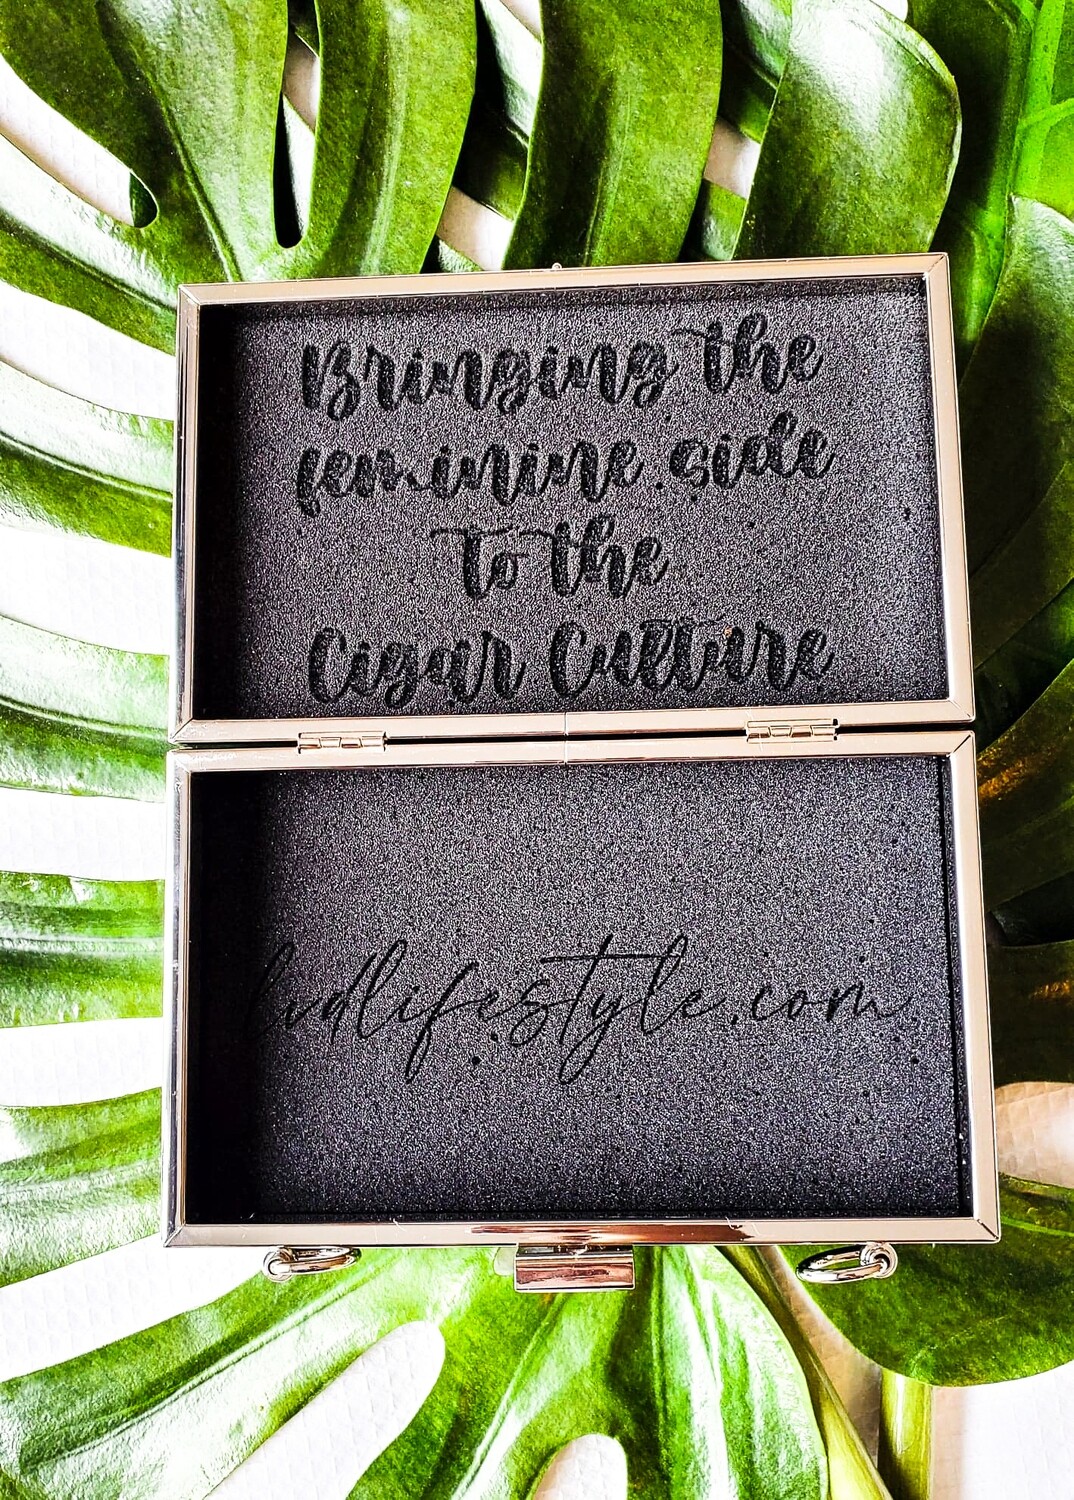 Bringing the
feminine side
To the
Cigar Culture
lvdlifestyle.com